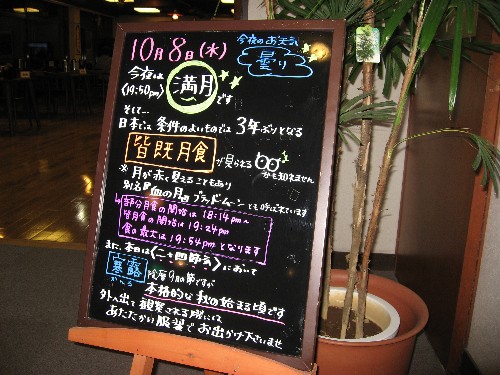 10月8日(水)
今夜のお天気
曇り
今夜は
(19:50pm)
満月
です
そして…
日本では 条件のよいものでは 3年ぶりとなる
皆既月食
が見られる
かも知れません
※月が赤く見えることもあり
別名『血の月』ブラッドムーン とも呼ばれています
部分月食の開始は 18:14pm~
皆既月食の開始は 19:24pm
食の最大は 19:54pm となります
また、本日は〈二十四節気〉において
寒露
かんろ
陰暦9月の節ですが
本格的な 秋の始まる頃です
外へ出て 観察される際には
あたたかい服装で お出かけ下さいませ